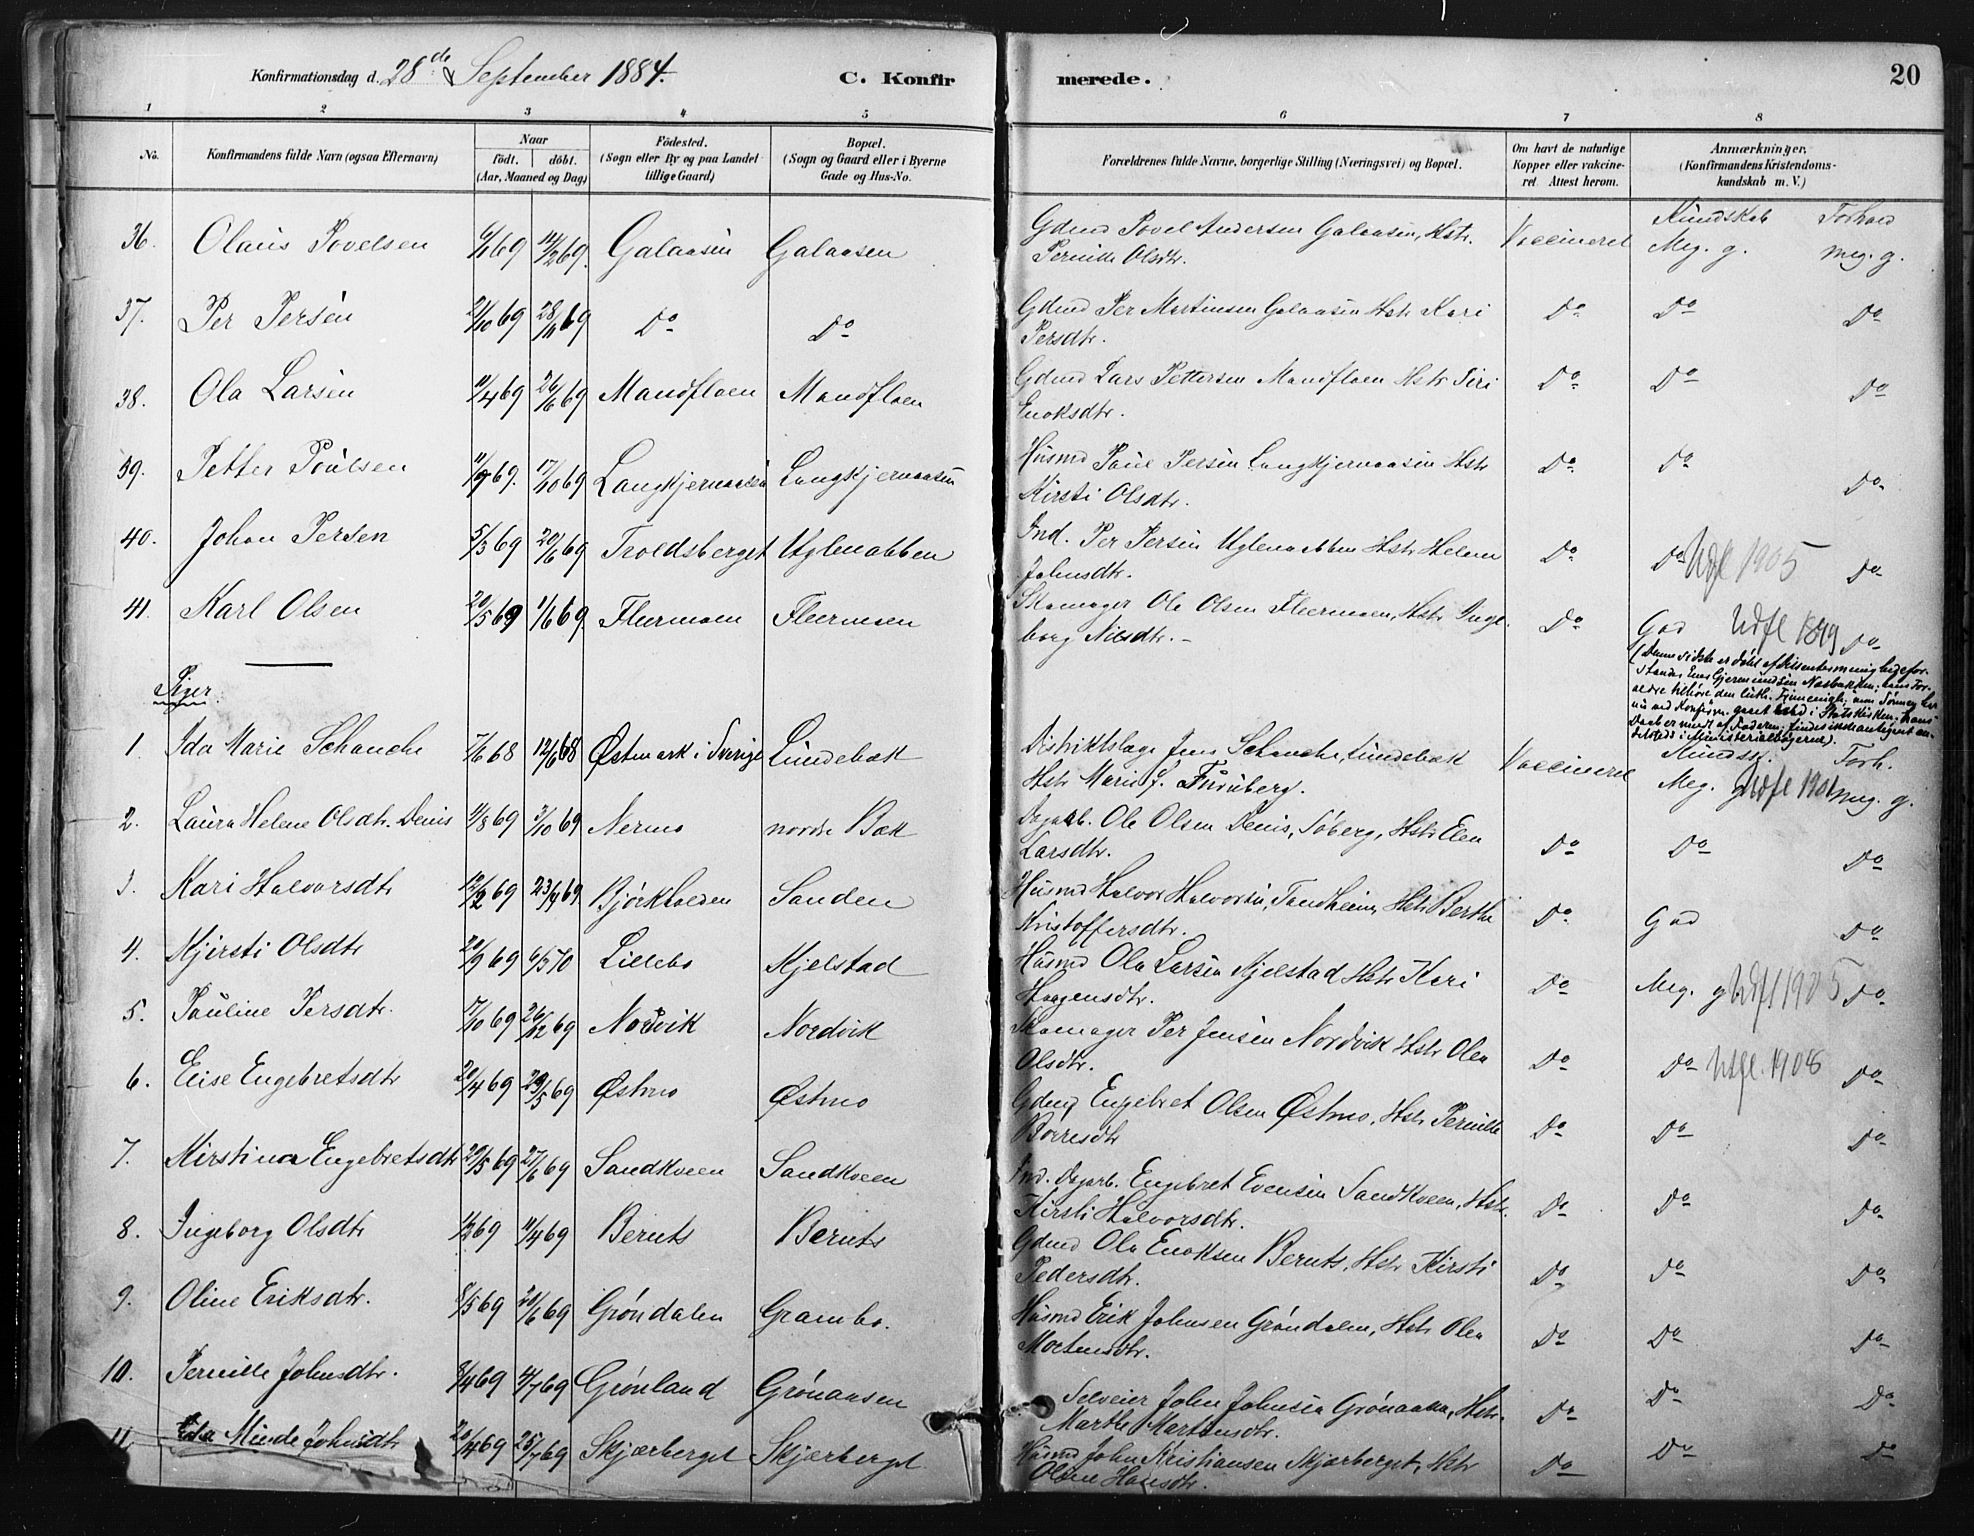 Konfirmationsdag d. 28de September 1884. C. Konfirmerede. 20
1 2 3 4 5 6 7 8
No. Konfirmandens fulde Navn (ogsaa Efternavn) Naar født. døbt. (Aar, Maaned og Dag) Fødested. (Sogn eller By og paa Landet tillige Gaard) Bopæl. (Sogn og Gaard eller i Byerne Gade og Hus-No. Forældrenes fulde Navne, borgerlige Stilling (Næringsvei) og Bopæl. Om havt de naturlige Kopper eller vakcineret. Attest herom. Anmærkninger. (Konfirmandens Kristendomskundskab m. V.)
Kundskab Forhold
36. Olaus Povelsen 6/1 69 14/2 69. Galaasen Galaasen Gdmd Povel Andersen Galaasen, Hstr. Vaccineret Meg. g. meg. g.
Pernille Olsdtr.
37. Per Persen 21/10 69 28/11 69 Do Do Gdmd Per Martinsen Galaasen Hstr Kari Do Do Do
Persdtr.
38. Ola Larsen 11/4 69 26/6 69 Mandfloen Mandfloen Gdmd Lars Pettersen Mandfloen Hstr Siri Do Do Do
Enoksdtr.
39. Petter Poulsen 11/9 69. 17/10 69 Langkjernaasen Langkjernaasen Husmd Paul Persen Langkjernaasen Hstr Do Do Do
Kirsti Olsdtr.
40. Johan Persen 5/3 69 20/6 69 Troldsberget Uglenabben Ind. Per Persen Uglenabben Hstr Helene Do Do Udfl 1905 Do
Johnsdtr.
41. Karl Olsen 20/5 69 1/6 69. Fleermoen Fleermoen Skomager Ola Olsen Fleermoen, Hstr Inge- Do God Udfl 1899 Do
borg Nilsdtr. –
(Denne sidste er døbt af Dissentermenighedsfor-
Piger
Kundsk. Forh.
1. Ida Marie Schanche 7/6 68 12/6 68 Østmark i Sverige Lundebæk Distriktslæge Jens Schanche, Lundebæk Vaccineret Meg. g Udfl 1901 meg. g.
Hstr Marie J. Furuberg.
2. Laura Helene Olsdtr. Denis 11/8 69 3/10 69 Nermo nordre Bæk Dagarb. Ole Olsen Denis, Søberg, Hstr Elen Do Do Do
Larsdtr.
3. Kari Halvorsdtr 12/2 69 23/4 69 Bjørkholden Sanden Husmd Halvor Halvorsen, Tandheim, Hstr Berthe Do God Do
Kristoffersdtr.
4. Kjersti Olsdtr 20/9 69 6/5 70 Lillebo Kjelstad Husmd Ola Larsen Kjelstad Hstr Kari Do Meg. g Udfl 1905 Do
Haagensdtr.
5. Pauline Persdtr. 17/10 69 26/12 69 Nordvik Nordvik Skomager Per Jensen Nordvik Hstr Olea Do Do Utfl. 1908 Do
Olsdtr.
6. Elise Engebretsdtr 20/4 69 29/5 69 Østmo Østmo Gdmd Engebret Olsen Østmo, Hstr Pernille Do Do Do
Borresdtr
7. Kirstina Engebretsdtr 20/5 69 27/6 69 Sandkveen Sandkveen Ind. Dagarb. Engebret Evensen Sandkveen, Hstr. Do Do Do
Kirsti Halvorsdtr.
8. Ingeborg Olsdtr 1/2 69 11/4 69 Beruts Beruts Gdmd Ola Enoksen Beruts, Hstr Kirsti Do Do Do
Pedersdtr.
9. Oline Eriksdtr. 8/5 69 20/6 69 Grøndalen Grambo. Husmd Erik Johnsen Grøndalen, Hstr Olea Do Do Do
Mortensdtr.
10. Pernille Johnsdtr. 8/4 69 4/7 69 Grønland Grønaasen Selveier John Johnsen Grønaasen, Hstr. Do Do Do
Marthe Martensdtr.
11. Minde Johnsdtr 20/4 69 25/7 69 Skjærberget Skjærberget Husmd John Kristiansen Skjærberget, Hstr Do Do Do
Oline Hansdtr.